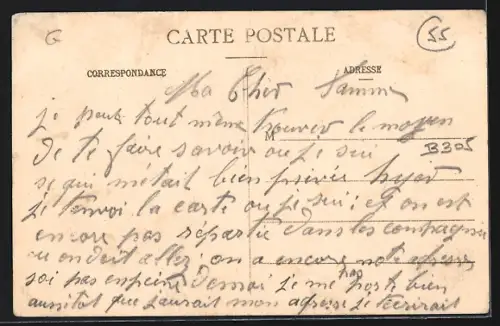 G
CARTE POSTALE
55
CORRESPONDANCE
ADRESSE
Ma Cher
M
je peut tout même trouver le moyen
de te faire savoir ou je sui
B305
se qui métait bien
je tenvoi la carte ou je sui : et on est
encore pas repartie dans les compagnie
ou on doit allez : on a encore
soi pas en peine de moi je me porte bien
aussitot que jaurait mon adresse je técrirait